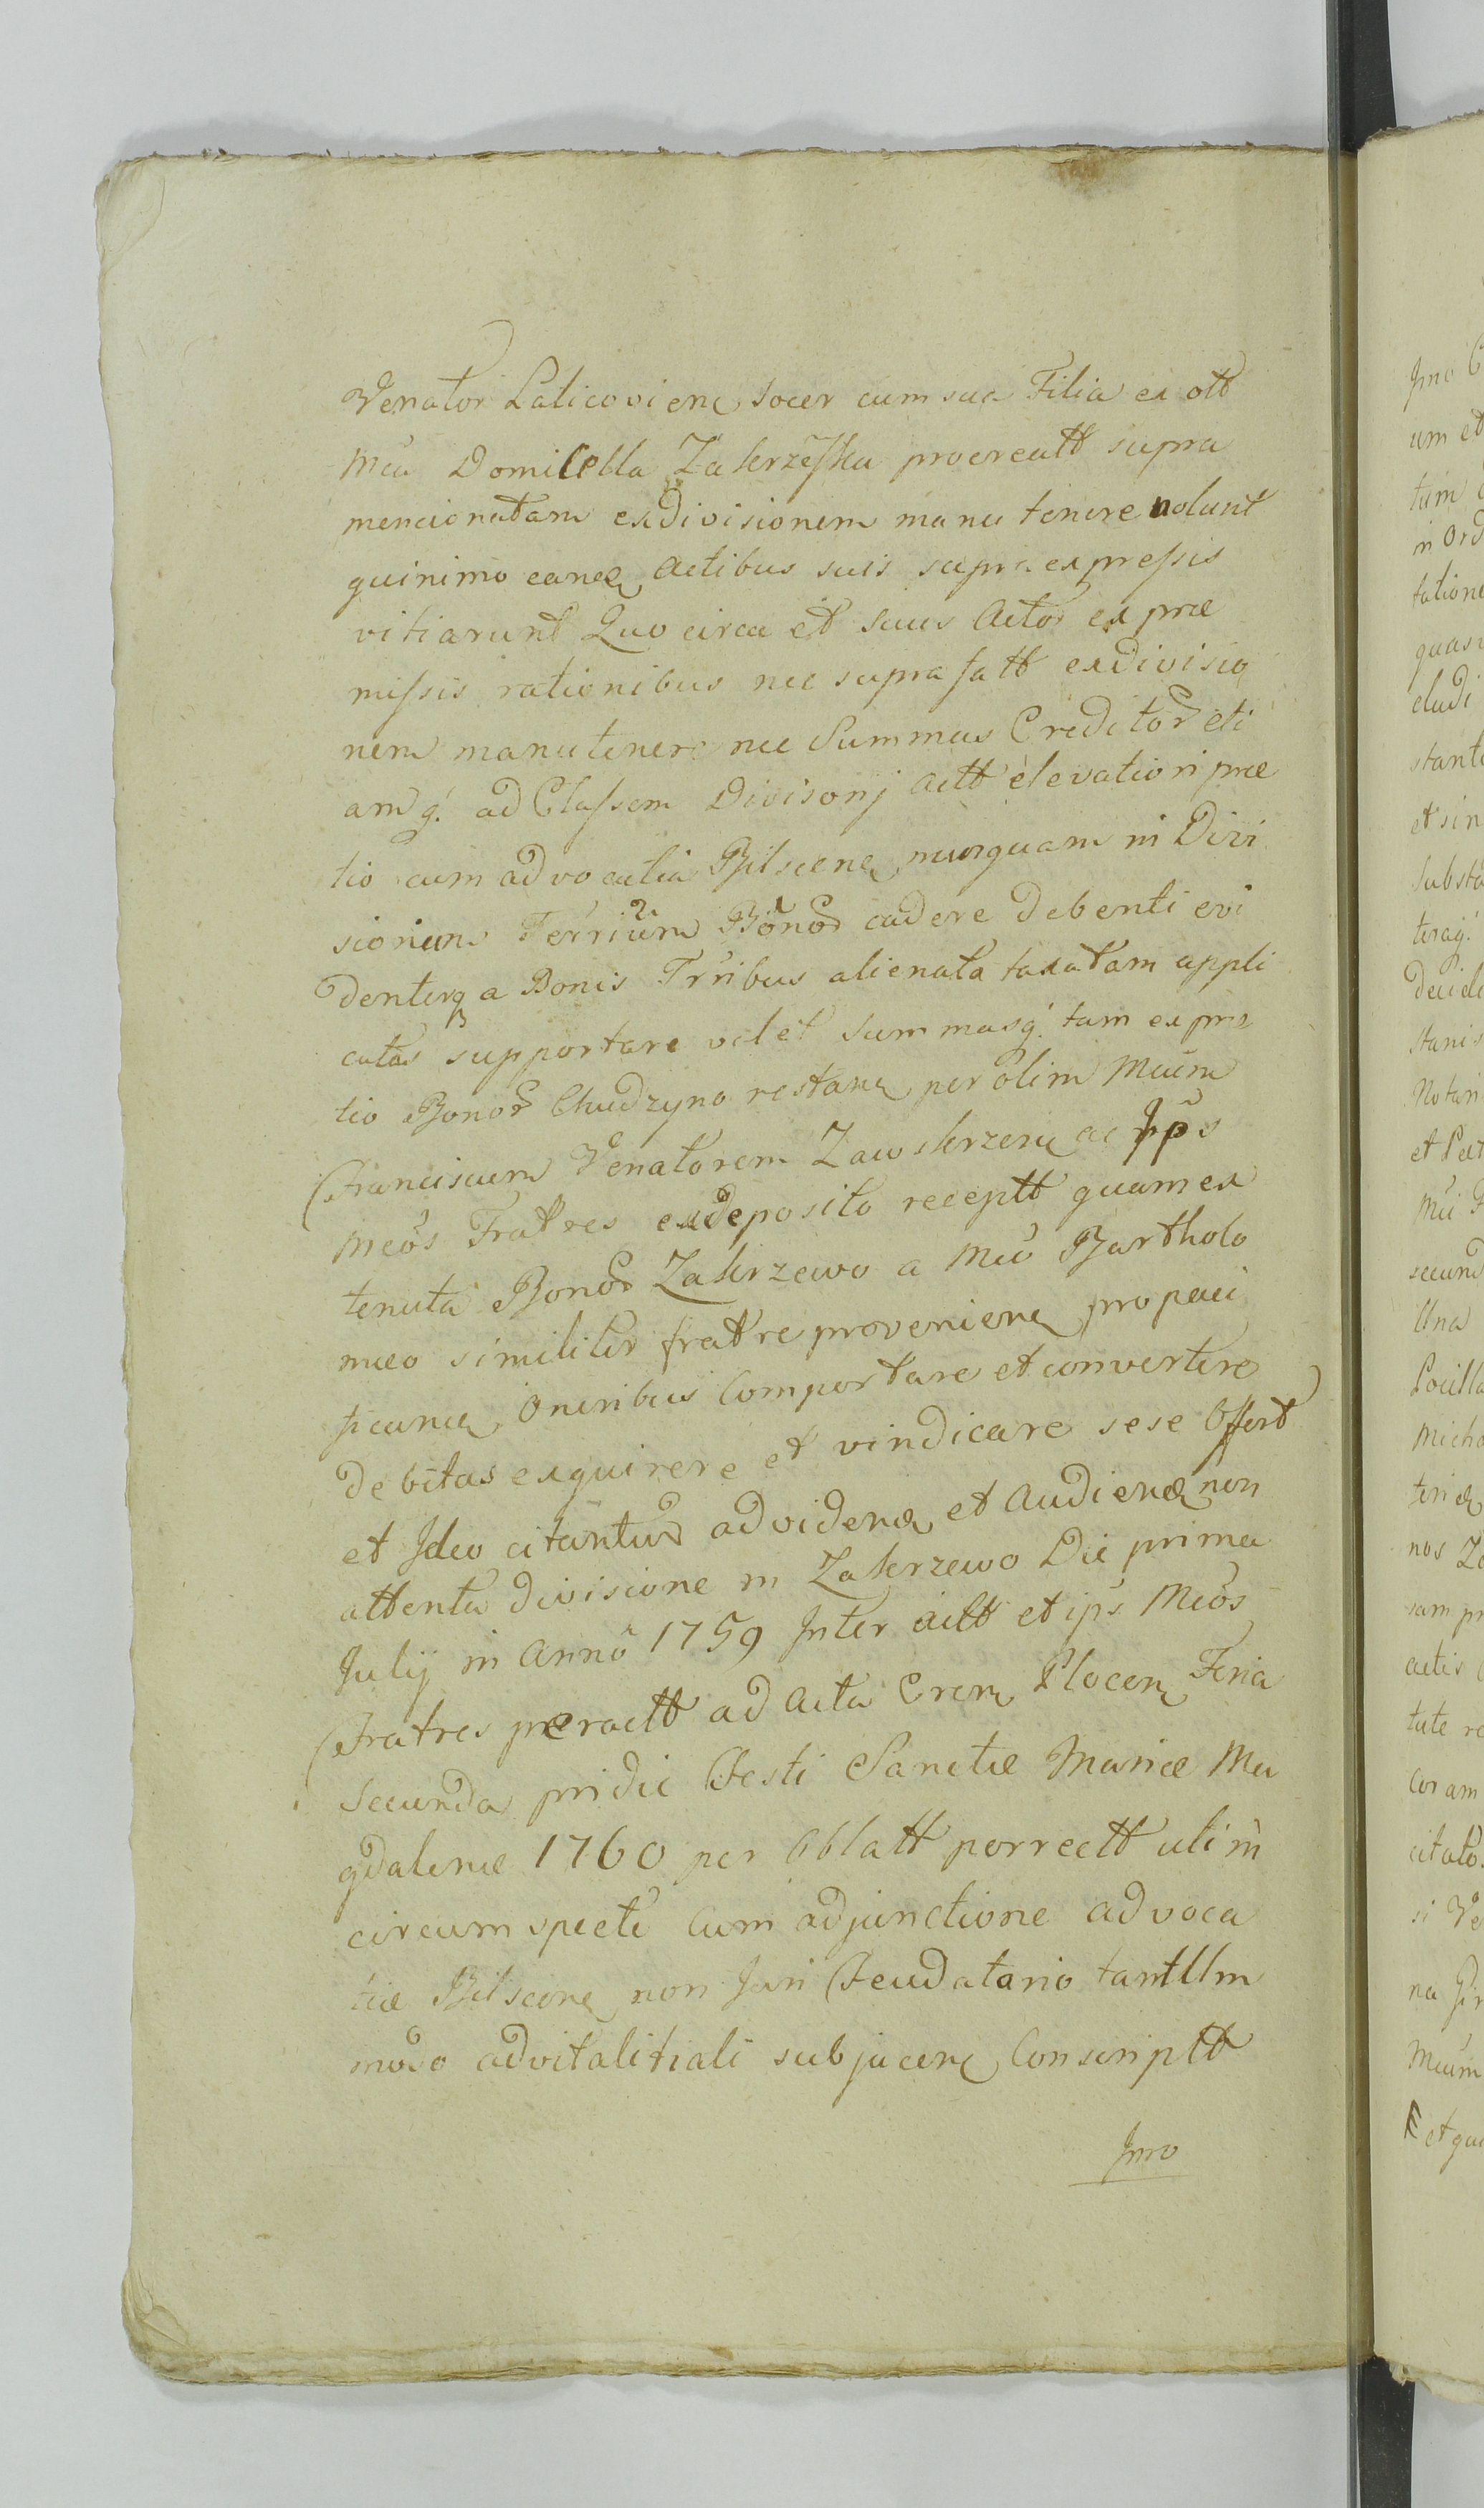 Venator Laticovien Socer cum sua Filia ex olt
Mea Domicella Zakrzeska procreatt supra
mencionatam exdivisionem manu tenere nolunt
quinimo eandq Actibus suis supra expressis
vitiarunt Quo circa et suus Actor ex præ
missis rationibus nec supra fatt exdivisio
nem manutenere nec Summas Creditor eti
amq. ad Classem Divisorij actt elevation præ
tio cum advocatia Bilscene, nunquam in Divi
sionem Terrium Bonor cadere debenti evi
denterq a Bonis Trribus alienata taxatam appli
catas supportare velet Summasq. tam ex præ
tio Bonor Chudzyno restanc per olim Mcum
Franciscum Venatorem Zawskrzen ac Ips
Mcos Fratres exdeposito receptt quam ex
tenuta Bonor Zakrzewo a Mco Bartholo
mæo similiter fratre provenienc pro paci
ficanc Oneribus Comportare et convertere
debitas exquirere et vindicare sese Offert
et Ideo citantur ad videnc et Audiend non
attenta divisione in Zakrzewo Die prima
Julij in Anno 1759 Inter actt et ips Mcos
Fratres peractt ad Acta Cren Plocen Feria
Secunda pridie Festi Sanctæ Mariæ Ma
gdalenæ 1760 per Oblatt porrectt uti in
circumspecte Cum adjunctione advoca
tiæ Bilscene non Juri Feudatario tanttm
modo advitalitiali subjacen Conscriptt
Imo
Imo
um et
tum
in Ord
tatione
quasi
eludi
stante
et sin
Substa
teraq.
Decide
Stanis
Notari
et Pat
Mci
secund
Una
Michae
nos Za
sam pr
actis
tute re
coram
citato
si Ve
na
Mcum
et qua